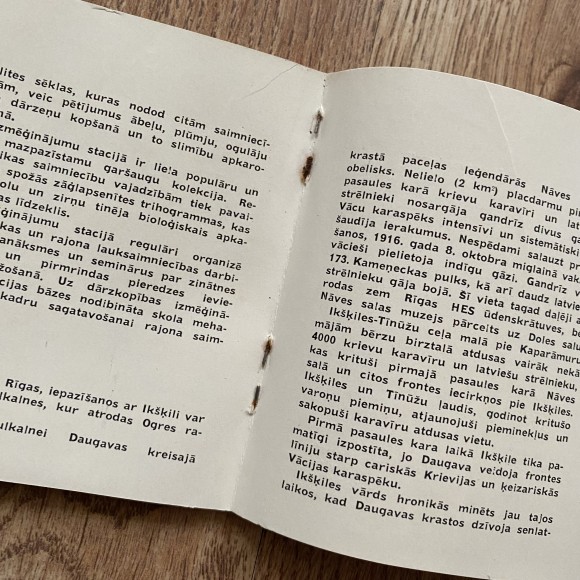 lites sēklas, kuras nodod citām saimniecī-
ām, veic pētījumus ābeļu, plūmju, ogulāju
dārzeņu kopšanā un to slimību apkaro-
nā.
zmēģinājumu stacijā ir liela populāru un
mazpazīstamu garšaugu kolekcija. Re-
ikas saimniecību vajadzībām tiek pavai-
spožās zāģlapsenītes trihogrammas, kas
olu un zirņu tinēja bioloģiskais apka-
as līdzeklis.
ēģinājumu stacijā regulāri organizē
kas un rajona lauksaimniecības darbi-
anāksmes un seminārus par zinātnes
un pirmrindas pieredzes ievie-
žošanā. Uz dārzkopības izmēģinā-
cijas bāzes nodibināta skola meha-
kadru sagatavošanai rajona saim-
Rīgas, iepazīšanos ar Ikšķili var
lkalnes, kur atrodas Ogres ra-
ulkalnei Daugavas kreisajā
krastā paceļas leģendārās Nāves
obelisks. Nelielo (2 km²) placdarmu
pasaules karā krievu karavīri un
strēlnieki nosargāja gandrīz divus
Vācu karaspēks intensīvi un
šaudīja ierakumus. Nespēdami salauzt
šanos, 1916. gada 8. oktobra miglainā
vācieši pielietoja indīgu gāzi. Gandrīz
173. Kameņeckas pulks, kā arī daudz
strēlnieku gāja bojā. Šī vieta tagad daļēji
rodas zem Rīgas HES ūdenskrātuves,
Nāves salas muzejs pārcelts uz Doles
Ikšķiles-Tīnūžu ceļa malā pie
mājām bērzu birztalā atdusas vairāk nekā
4000 krievu karavīru un latviešu strēlnieku,
kas krituši pirmajā pasaules karā Nāves
salā un citos frontes iecirkņos pie Ikšķiles.
Ikšķiles un Tīnūžu ļaudis, godinot kritušo
varoņu piemiņu, atjaunojuši pieminekļus un
sakopuši karavīru atdusas vietu.
Pirmā pasaules kara laikā Ikšķile tika pa-
matīgi izpostīta, jo Daugava veidoja frontes
līniju starp cariskās Krievijas un ķeizariskās
Vācijas karaspēku.
Ikšķiles vārds hronikās minēts jau tajos
laikos, kad Daugavas krastos dzīvoja senlat-